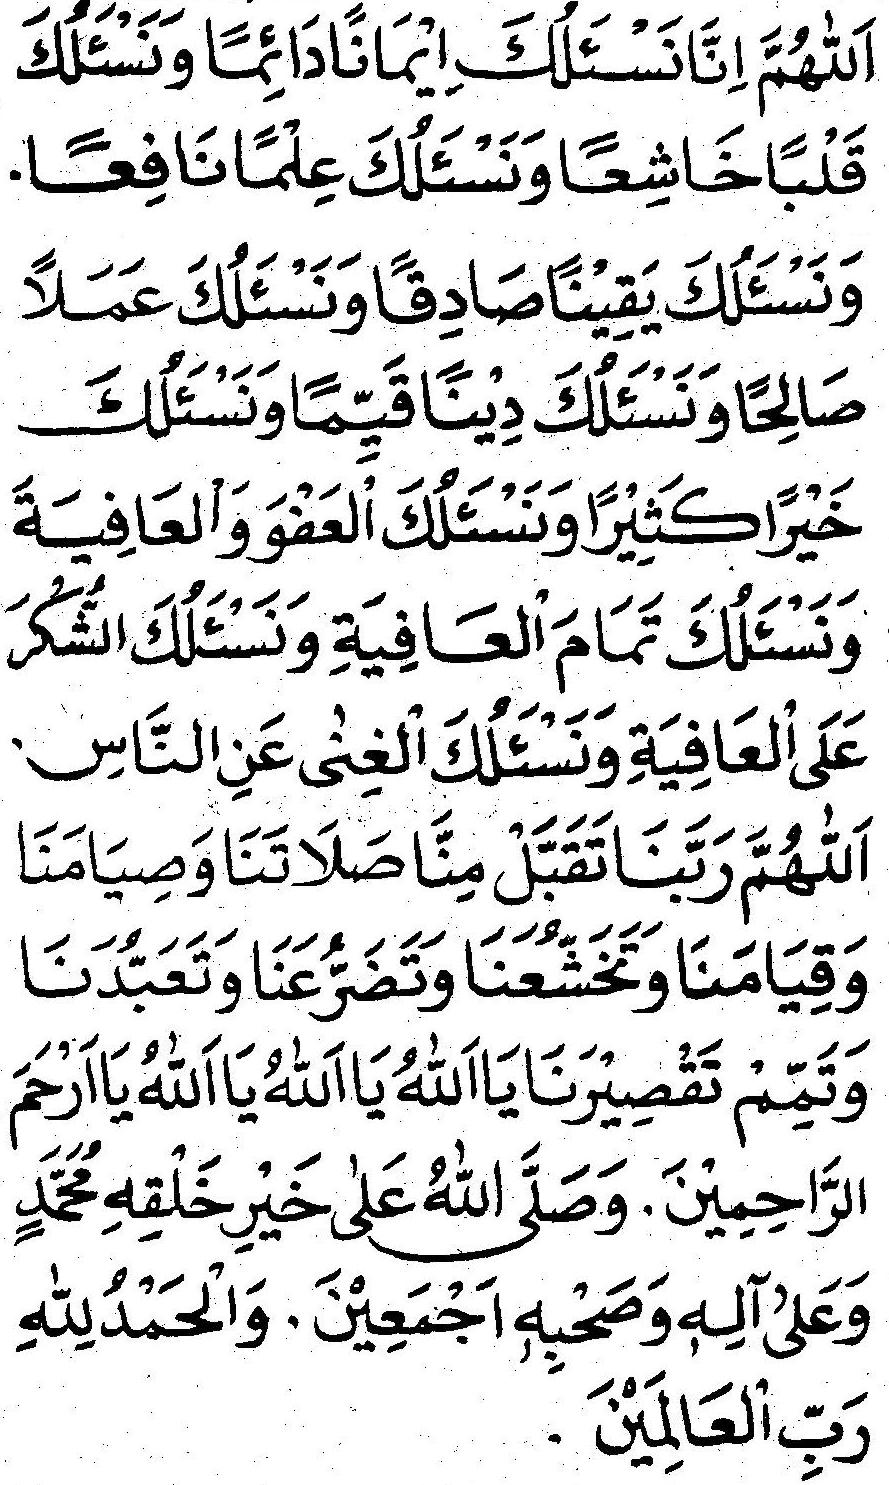 اَللّٰهُمَّ اِنَّا نَسْئَلُكَ اِيْمَانًا دَائِمًا وَنَسْئَلُكَ
قَلْبًا خَاشِعًا وَنَسْئَلُكَ عِلْمًا نَافِعًا.
وَنَسْئَلُكَ يَقِيْنًا صَادِقًا وَنَسْئَلُكَ عَمَلًا
صَالِحًا وَنَسْئَلُكَ دِيْنًا قَيِّمًا وَنَسْئَلُكَ
خَيْرًا كَثِيْرًا وَنَسْئَلُكَ الْعَفْوَ وَالْعَافِيَةَ
وَنَسْئَلُكَ تَمَامَ الْعَافِيَةِ وَنَسْئَلُكَ الشُّكْرَ
عَلَى الْعَافِيَةِ وَنَسْئَلُكَ الْغِنٰى عَنِ النَّاسِ.
اَللّٰهُمَّ رَبَّنَا تَقَبَّلْ مِنَّا صَلَاتَنَا وَصِيَامَنَا
وَقِيَامَنَا وَتَخَشُّعَنَا وَتَضَرُّعَنَا وَتَعَبُّدَنَا
وَتَمِّمْ تَقْصِيْرَنَا يَا اَللّٰهُ يَا اَللّٰهُ يَا اَللّٰهُ يَا اَرْحَمَ
الرَّاحِمِيْنَ. وَصَلَّى اللّٰهُ عَلٰى خَيْرِ خَلْقِهِ مُحَمَّدٍ
وَعَلٰى آلِهٖ وَصَحْبِهٖ اَجْمَعِيْنَ. وَالْحَمْدُ لِلّٰهِ
رَبِّ الْعَالَمِيْنَ.